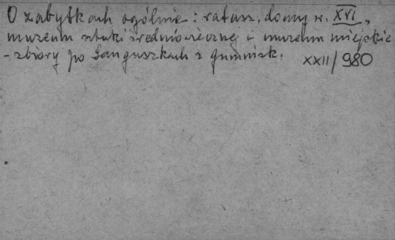 O zabytkach ogólnie: ratusz, domy w. XVI,
muzeum sztuki średniowiecznej i muzeum miejskie
- zbiory po Sanguszkach z Gumnisk. XXII/980